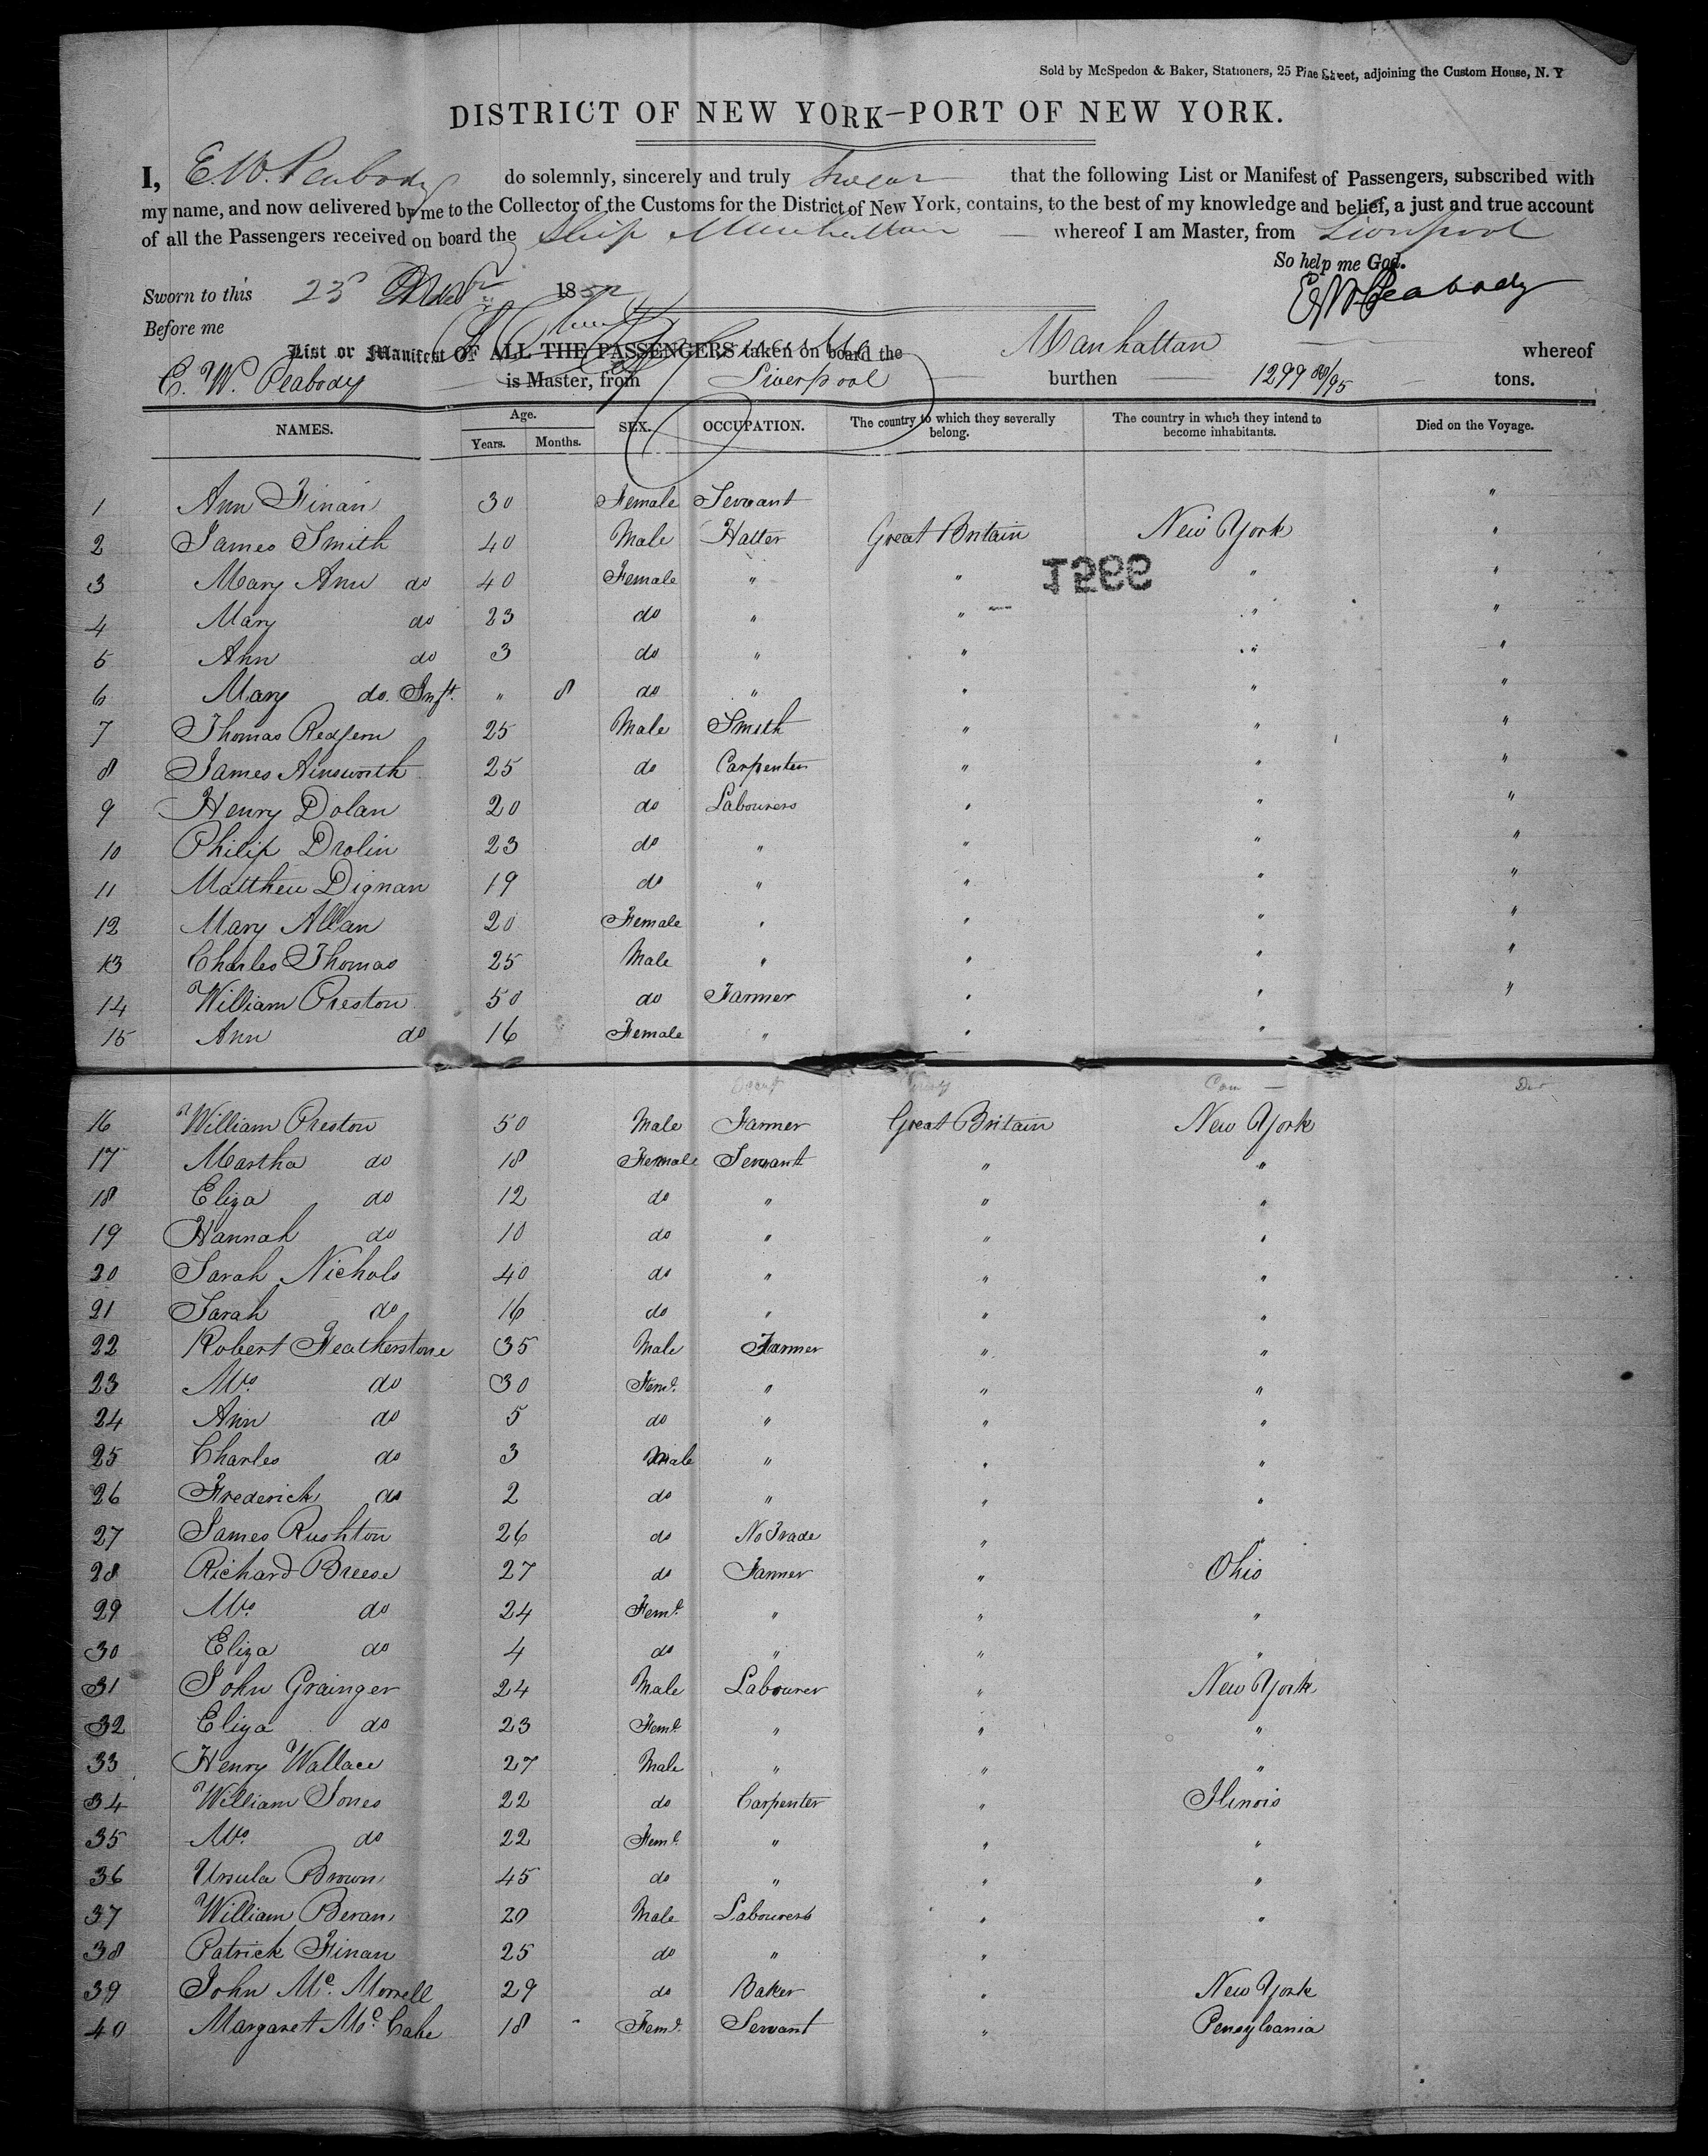 Sold by McSpedon & Baker, Stationers, 25 Pine Street, adjoining the Custom House, N. Y
DISTRICT OF NEW YORK—PORT OF NEW YORK.
I, E. W. Peabody do solemnly, sincerely and truly swear that the following List or Manifest of Passengers, subscribed with
my name, and now delivered by me to the Collector of the Customs for the District of New York, contains, to the best of my knowledge and belief, a just and true account
of all the Passengers received on board the Ship Manhattan whereof I am Master, from Liverpool
So help me God.
Sworn to this 23 1852
E W Peabody
Before me
List or Manifest OF ALL THE PASSENGERS taken on board the Manhattan whereof
E. W. Peabody is Master, from Liverpool burthen 1299 /95 tons.
NAMES. Age. Years. Months. SEX. OCCUPATION. The country to which they severally belong. The country in which they intend to become inhabitants. Died on the Voyage.
1 Ann Finan 30 Female Servant "
2 James Smith 40 Male Hatter Great Britain New York "
1299
3 Mary Ann do 40 Female " " " "
4 Mary do 23 do " " " "
5 Ann do 3 do " " " "
6 Mary do. Inft. " 8 do " " " "
7 Thomas Redfern 25 Male Smith " " "
8 James Ainsworth 25 do Carpenter " " "
9 Henry Dolan 20 do Labourers " " "
10 Philip Drolin 23 do " " " "
11 Matthew Dignan 19 do " " " "
12 Mary Allan 20 Female " " " "
13 Charles Thomas 25 Male " " " "
14 William Preston 50 do Farmer " " "
15 Ann do 16 Female " " "
16 William Preston 50 Male Farmer Great Britain New York
17 Martha do 18 Female Servant " "
18 Eliza do 12 do " " "
19 Hannah do 10 do " " "
20 Sarah Nichols 40 do " " "
21 Sarah do 16 do " " "
22 Robert Featherstone 35 Male Farmer " "
23 Mrs do 30 Feme. " " "
24 Ann do 5 do " " "
25 Charles do 3 Male " " "
26 Frederick do 2 do " " "
27 James Rushton 26 do No Trade " "
28 Richard Breese 27 do Farmer " Ohio
29 Mrs. do 24 Feme. " " "
30 Eliza do 4 do " " "
31 John Grainger 24 Male Labourer " New York
32 Eliza do 23 Feme. " " "
33 Henry Wallace 27 Male " " "
34 William Jones 22 do Carpenter " Ilinois
35 Mrs. do 22 Feme. " " "
36 Ursula Brown 45 do " " "
37 William Beran 20 Male Labourers " "
38 Patrick Finan 25 do " "
39 John Mc. Morrell 29 do Baker " New York
40 Margaret Mc. Cabe 18 Feme. Servant " Pensylvania